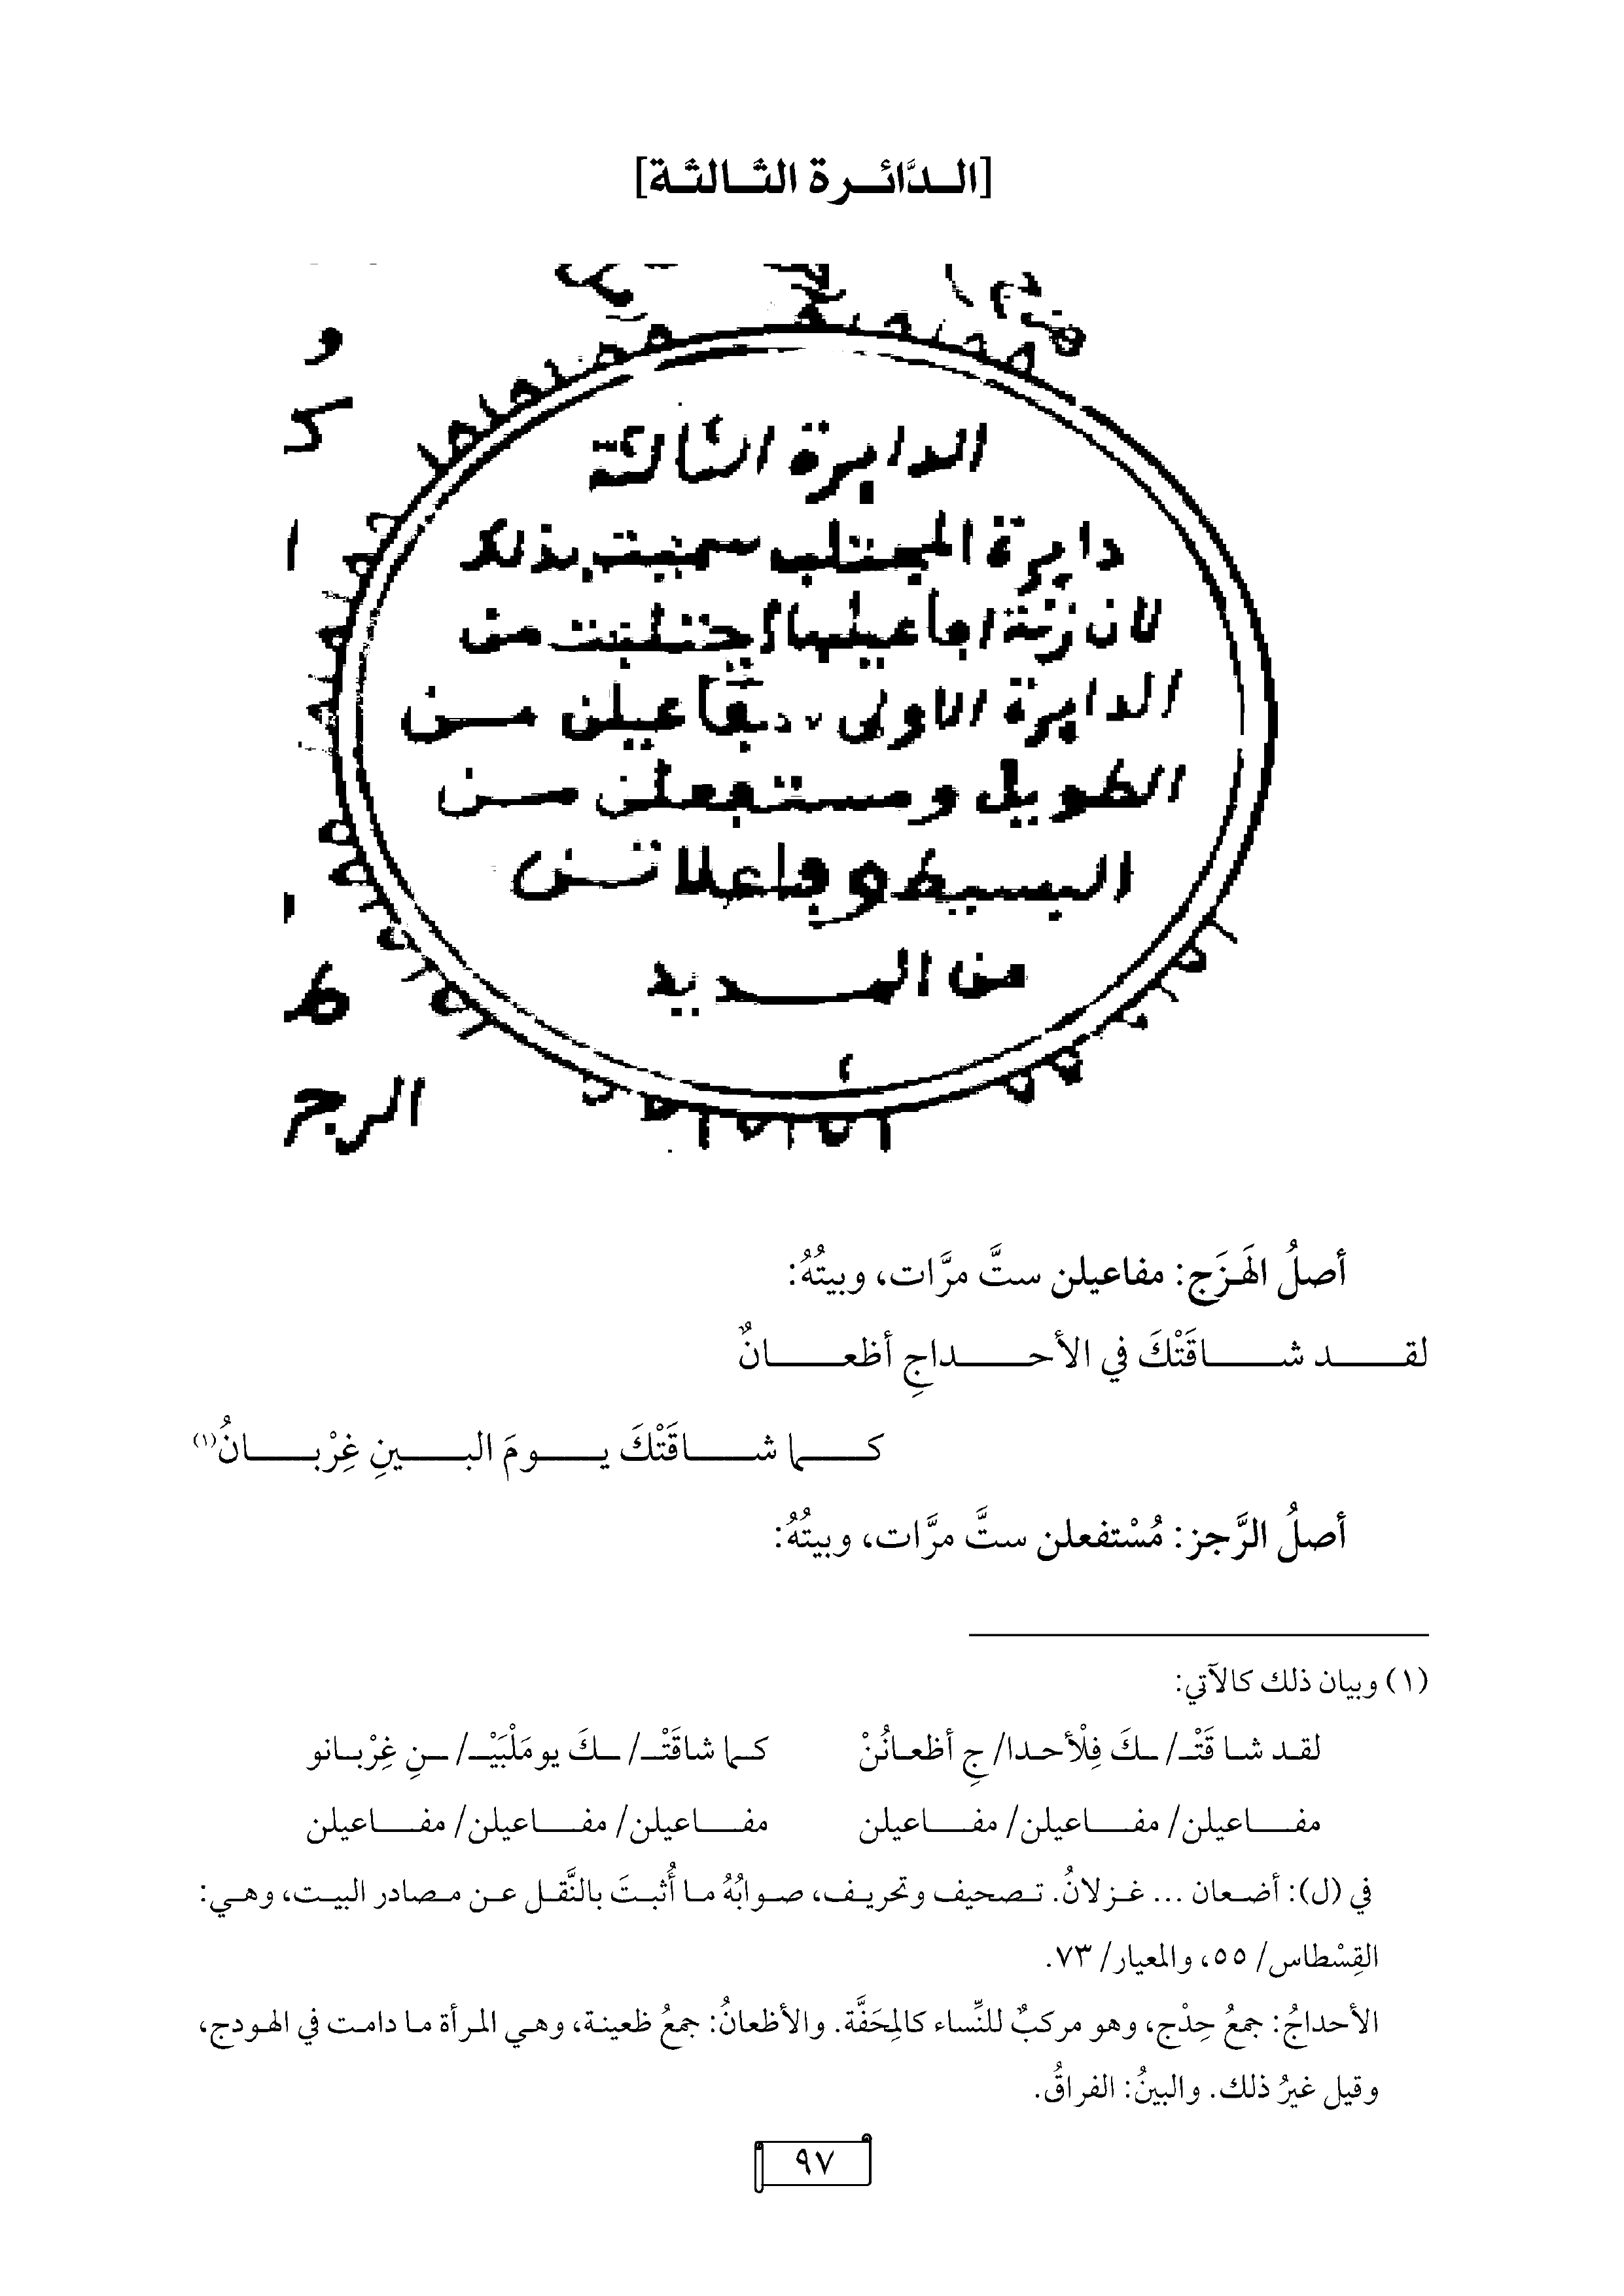 [الـدَّائـرة الثـالثـة]
الدايرة الثالثة
دايرة المجتلب سميت بذلك
لان زنة افاعيلها اجتلبت من
الدايرة الاولى فمفاعيلن من
الطويل ومستفعلن من
البسيط وفاعلاتن
من المديد
الرجز
أصلُ الهَزَج: مفاعيلن ستَّ مرَّات، وبيتُهُ:
لقد شاقَتْكَ في الأحداجِ أظعانٌ
كما شاقَتْكَ يومَ البينِ غِرْبانُ(١)
أصلُ الرَّجز: مُسْتفعلن ستَّ مرَّات، وبيتُهُ:
(١) وبيان ذلك كالآتي:
لقد شا قَتْـ/ ـكَ فِلْأحدا/ جِ أظعانُنْ كما شاقَتْـ/ ـكَ يومَلْبَيْـ/ ـنِ غِرْبانو
مفاعيلن/ مفاعيلن/ مفاعيلن مفاعيلن/ مفاعيلن/ مفاعيلن
في (ل): أضعان ... غزلانُ. تصحيف وتحريف، صوابُهُ ما أُثبتَ بالنَّقل عن مصادر البيت، وهي:
القِسْطاس/ ٥٥، والمعيار/ ٧٣.
الأحداجُ: جمعُ حِدْج، وهو مركبٌ للنِّساء كالمِحَفَّة. والأظعانُ: جمعُ ظعينة، وهي المرأة ما دامت في الهودج،
وقيل غيرُ ذلك. والبينُ: الفراقُ.
٩٧